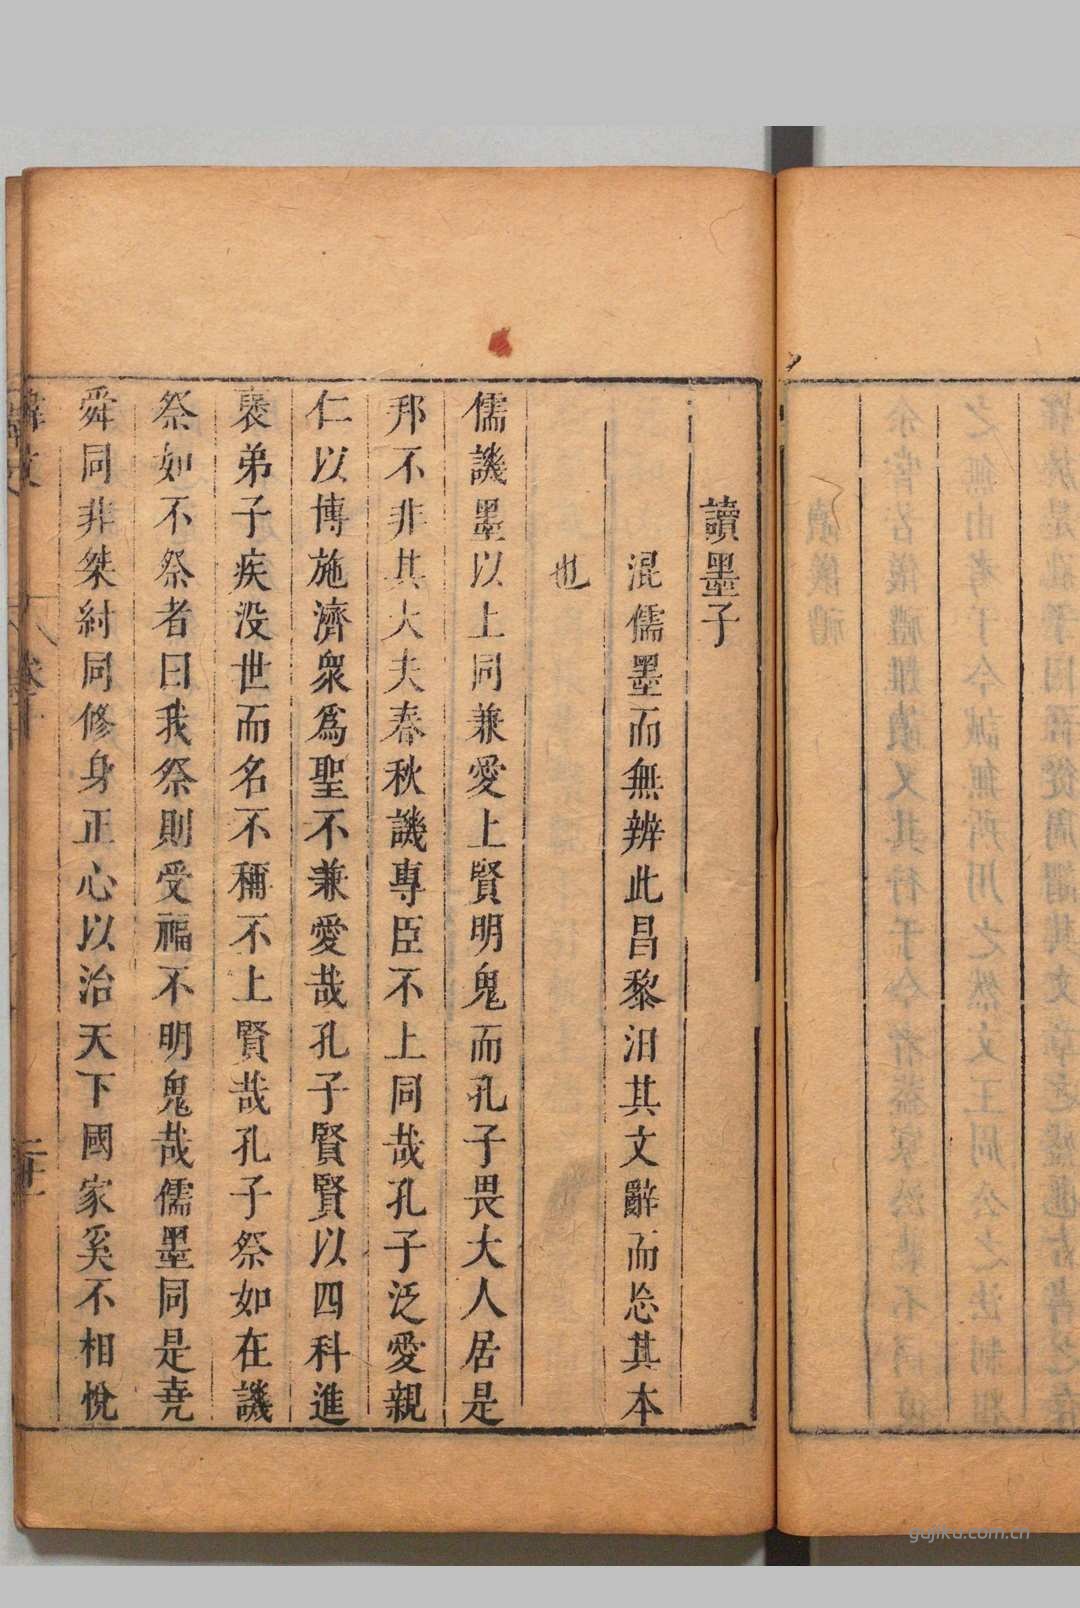 讀墨子
混儒墨而無辨此昌黎汨其文辭而忩其本
也
儒譏墨以上同兼愛上賢明鬼而孔子畏大人居是
邦不非其大夫春秋譏專臣不上同哉孔子泛愛親
仁以博施濟衆爲聖不兼愛哉孔子賢賢以四科進
褎弟子疾没世而名不稱不上賢哉孔子祭如在譏
祭如不祭者曰我祭則受福不明鬼哉儒墨同是堯
舜同非桀紂同修身正心以治天下國家奚不相悅
gujiku.com.cn